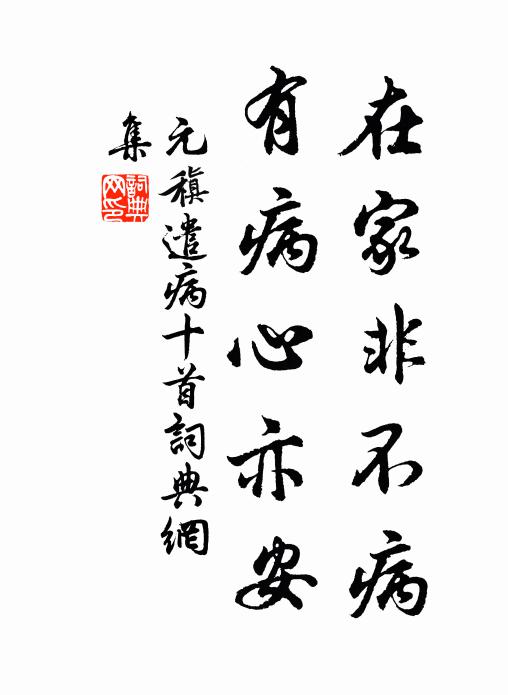 在家非不病
有病心亦安
元稹遣病十首詞典網
集
詞典
网印